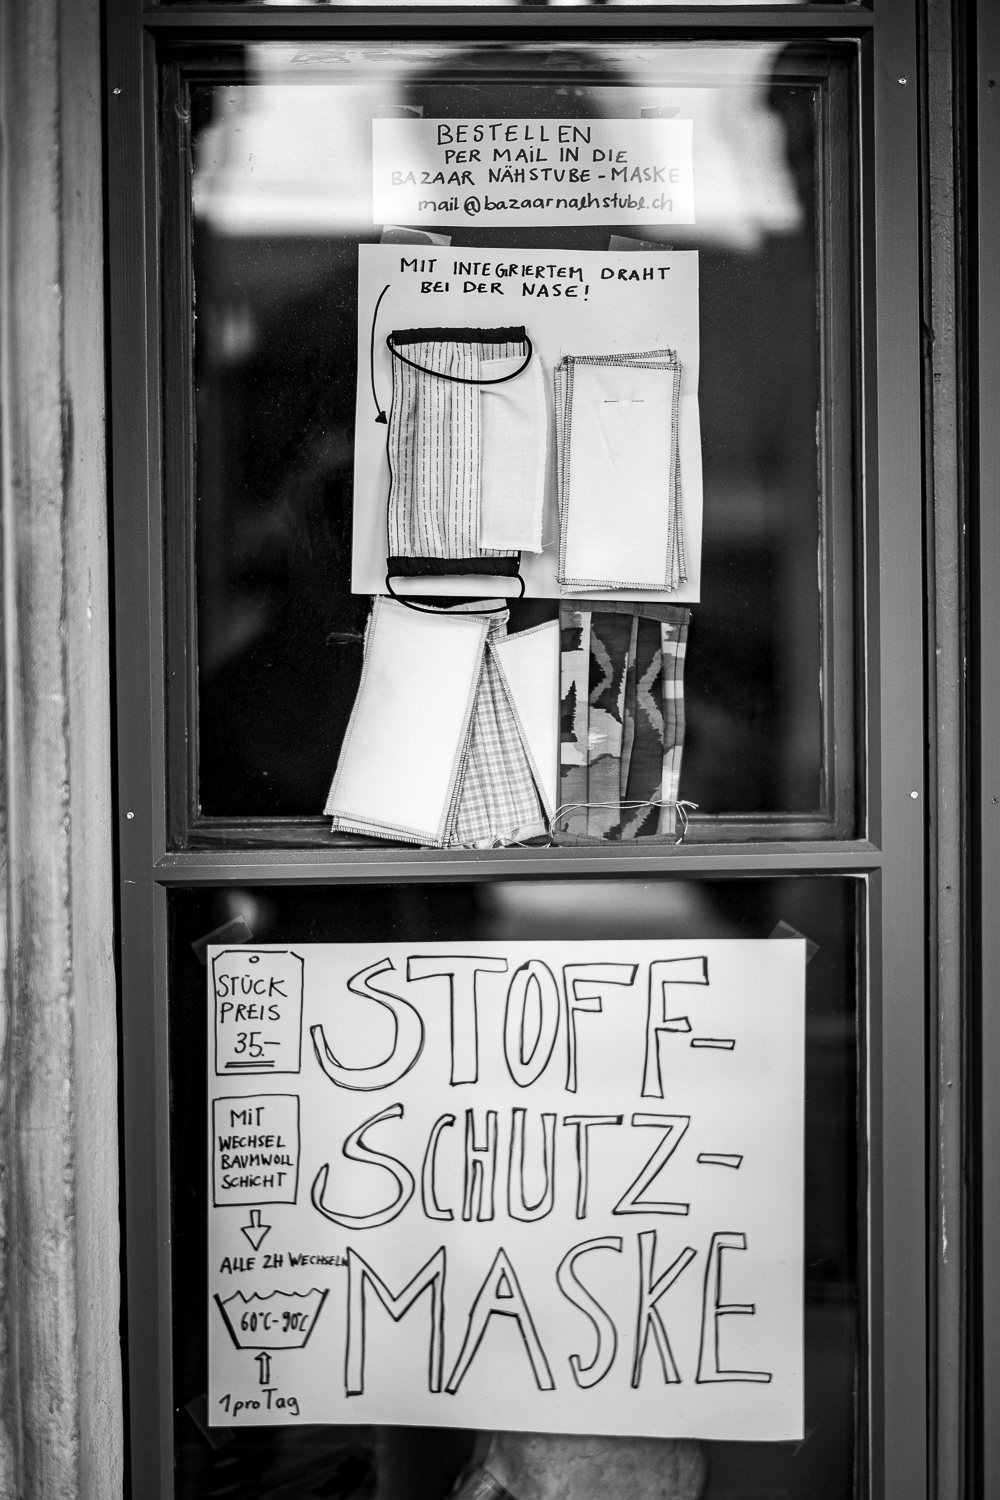 BESTELLEN
PER MAIL IN DIE
BAZAAR NÄHSTUBE-MASKE
mail@bazaarnaehstube.ch
MIT INTEGRIERTEM DRAHT
BEI DER NASE!
STÜCK
PREIS
35.-
MIT
WECHSEL
BAUMWOLL
SCHICHT
ALLE 2H WECHSELN
60°C-90°C
1 pro Tag
STOFF-
SCHUTZ-
MASKE